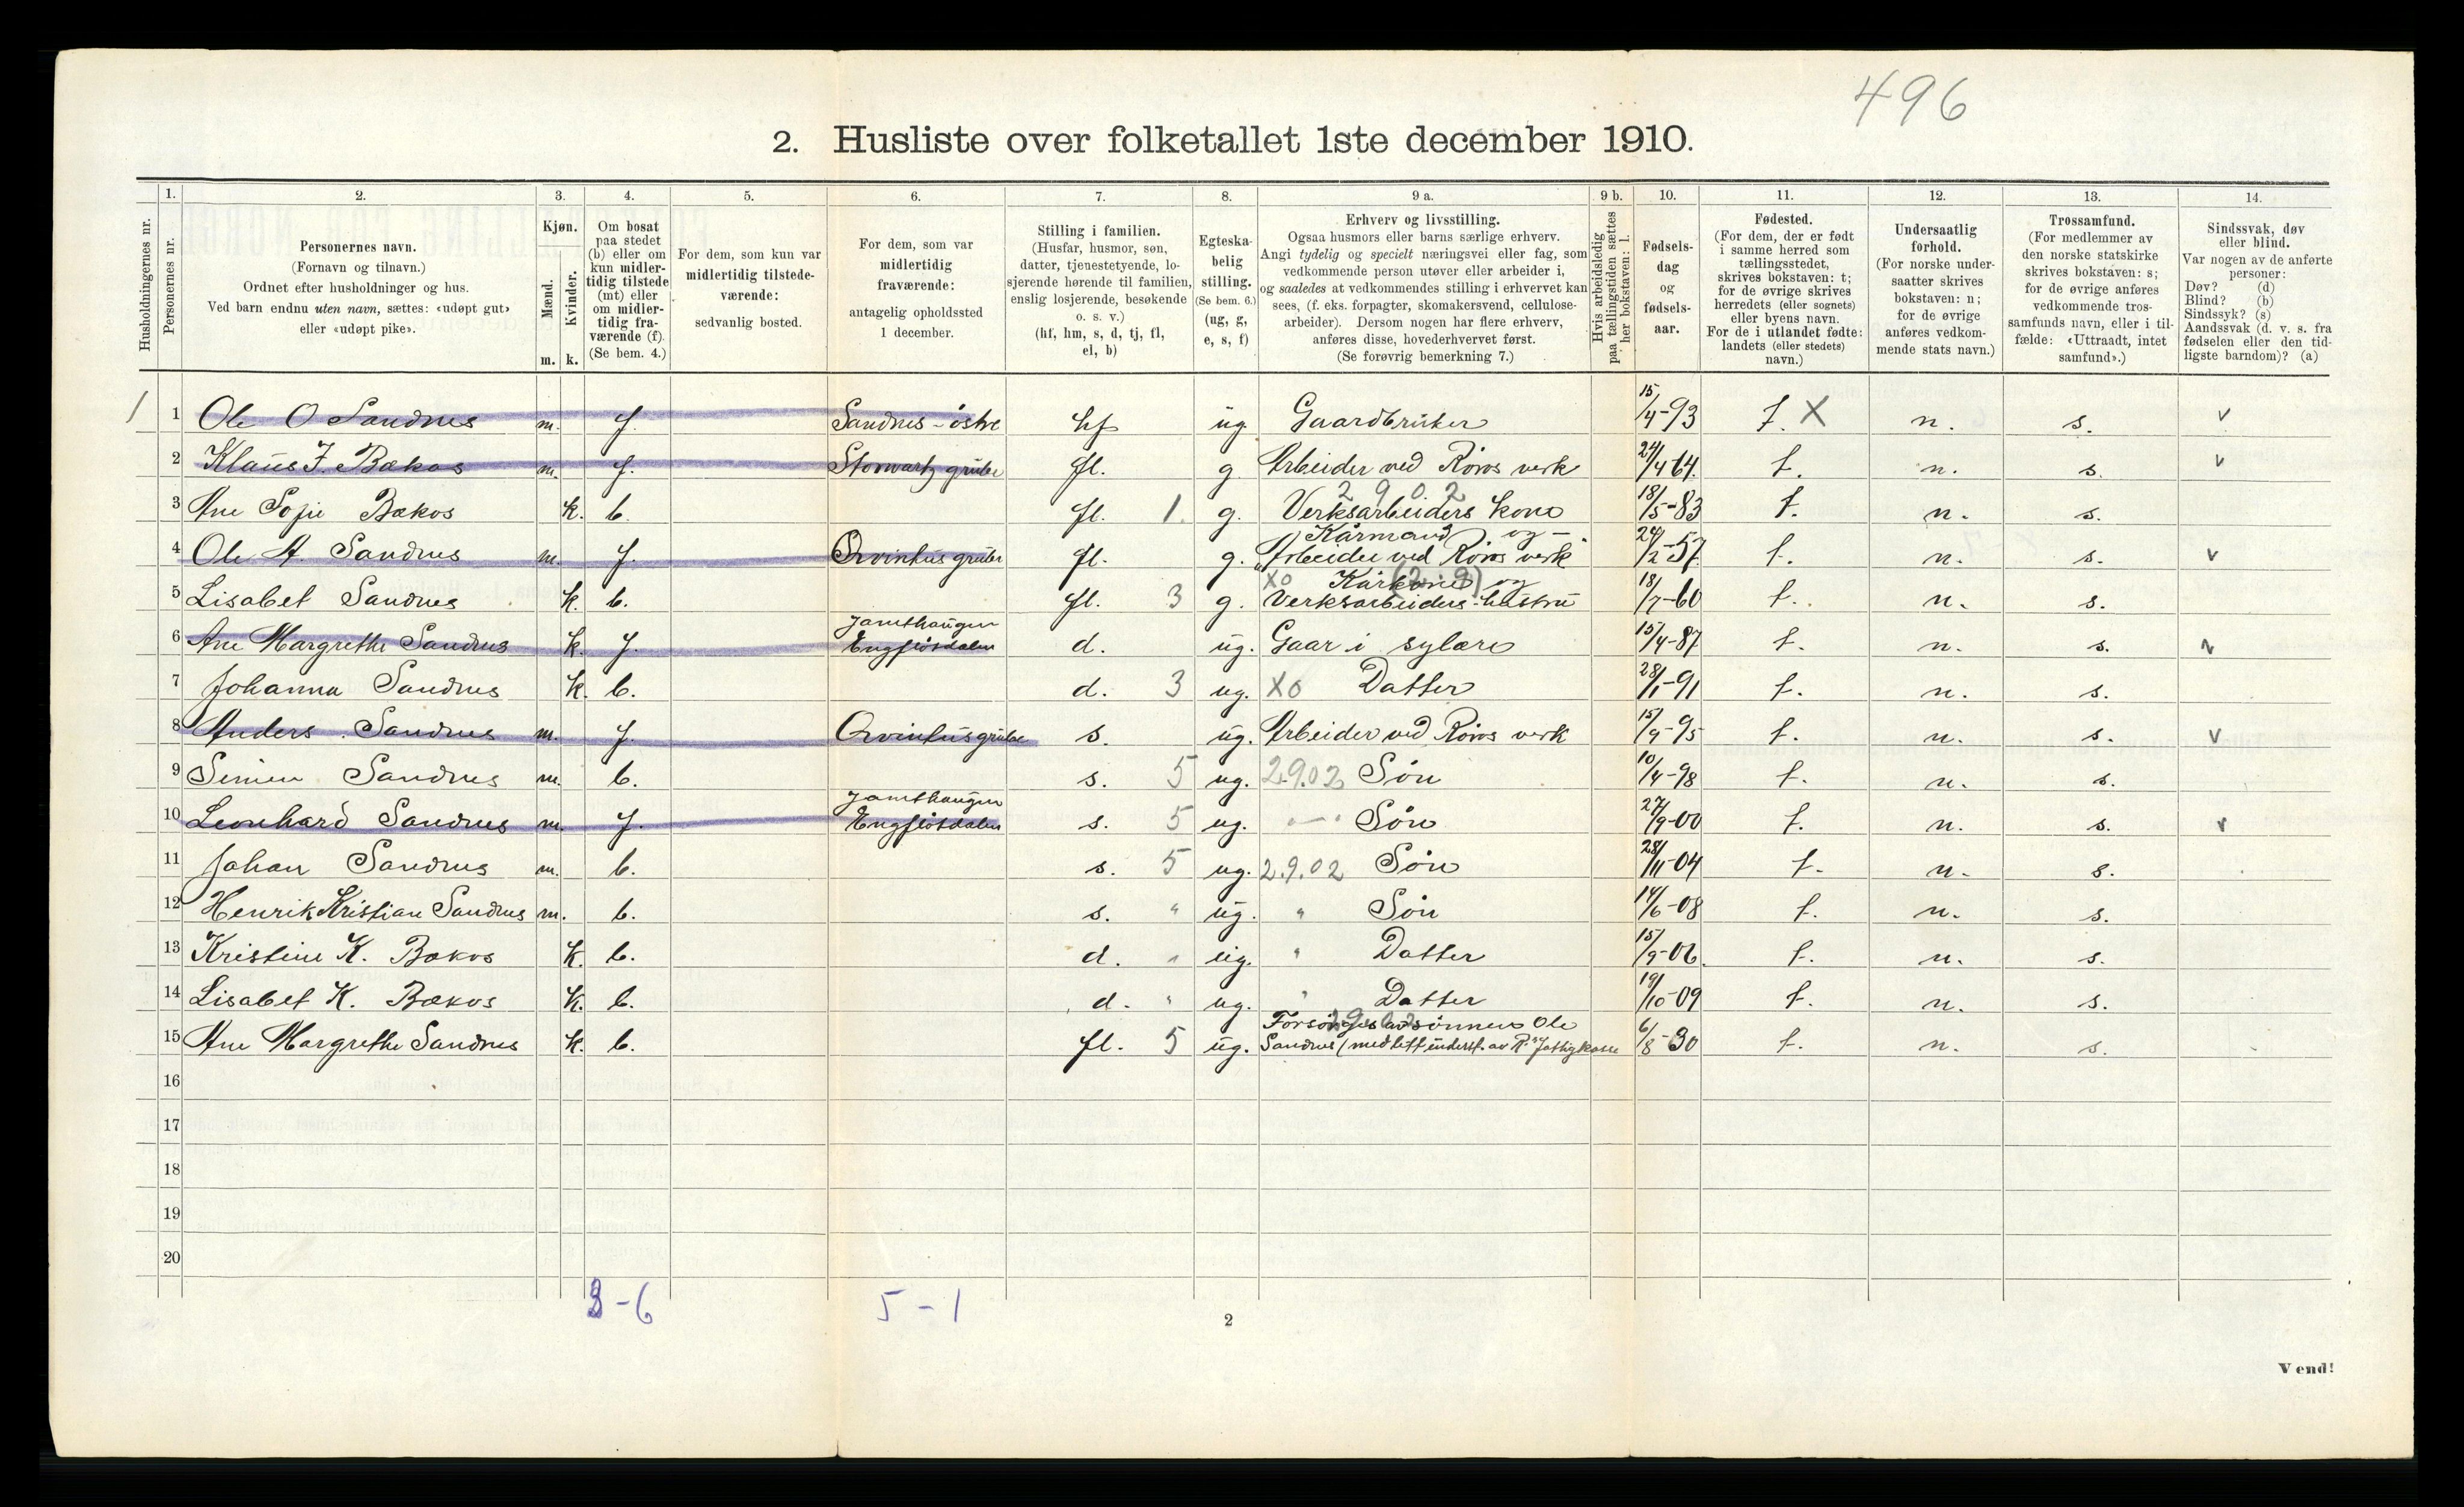 496
2. Husliste over folketallet 1ste december 1910.
1. 2. 3. 4. 5. 6. 7. 8. 9 a. 9 b. 10. 11. 12. 13. 14.
Husholdningernes nr.
Personernes nr.
Personernes navn.
(Fornavn og tilnavn.)
Ordnet efter husholdninger og hus.
Ved barn endnu uten navn, sættes: «udøpt gut»
eller «udøpt pike».
Kjøn.
Mænd.
Kvinder.
m. k.
Om bosat
paa stedet
(b) eller om
kun midler-
tidig tilstede
(mt) eller
om midler-
tidig fra-
værende (f).
(Se bem. 4.)
For dem, som kun var
midlertidig tilstede-
værende:
sedvanlig bosted.
For dem, som var
midlertidig
fraværende:
antagelig opholdssted
1 december.
Stilling i familien.
(Husfar, husmor, søn,
datter, tjenestetyende, lo-
sjerende hørende til familien,
enslig losjerende, besøkende
o. s. v.)
(hf, hm, s, d, tj, fl,
el, b)
Egteska-
belig
stilling.
(Se bem. 6.)
(ug, g,
e, s, f)
Erhverv og livsstilling.
Ogsaa husmors eller barns særlige erhverv.
Angi tydelig og specielt næringsvei eller fag, som
vedkommende person utøver eller arbeider i,
og saaledes at vedkommendes stilling i erhvervet kan
sees, (f. eks. forpagter, skomakersvend, cellulose-
arbeider). Dersom nogen har flere erhverv,
anføres disse, hovederhvervet først.
(Se forøvrig bemerkning 7.)
Hvis arbeidsledig
paa tællingstiden sættes
her bokstaven: l.
Fødsels-
dag
og
fødsels-
aar.
Fødested.
(For dem, der er født
i samme herred som
tællingsstedet,
skrives bokstaven: t;
for de øvrige skrives
herredets (eller sognets)
eller byens navn.
For de i utlandet fødte:
landets (eller stedets)
navn.)
Undersaatlig
forhold.
(For norske under-
saatter skrives
bokstaven: n;
for de øvrige
anføres vedkom-
mende stats navn.)
Trossamfund.
(For medlemmer av
den norske statskirke
skrives bokstaven: s;
for de øvrige anføres
vedkommende tros-
samfunds navn, eller i til-
fælde: «Uttraadt, intet
samfund».)
Sindssvak, døv
eller blind.
Var nogen av de anførte
personer:
Døv? (d)
Blind? (b)
Sindssyk? (s)
Aandssvak (d. v. s. fra
fødselen eller den tid-
ligste barndom)? (a)
1 1 Ole O Sandnes m. f. Sandnes-östre hf ug Gaardbruker 15/4-93 t. X n. s. v
2 Klaus J. Bækos m. f. Storwartz grube fl. g. Arbeider ved Röros verk 24/4 64. t. n. s. v
3 Ane Sofie Bækos k. b. fl. 1. g. 2 9 0. 2 Verksarbeiders kone 18/5-83 t. n. s.
4 Ole A. Sandnes m. f. Arvintus grube fl. g. Kårmand og Arbeider ved Röros verk 24/2-57. t. n. s. v
5 Lisabet Sandnes k. b. fl. 3 g. X0 Kårkone og Verksarbeiders hustru 18/7-60 t. n. s.
6 Ane Margrethe Sandnes k. f. d. ug. Gaar i sylære 15/4-87 t. n. s. v
7 Johanna Sandnes k. b. d. 3 ug. X0 Datter 28/1-91 t. n. s.
8 Anders Sandnes m. f. Arvintus grube s. ug. Arbeider ved Röros verk 15/9-95 t. n. s. v
9 Simen Sandnes m. b. s. 5 ug. 2.9.02 Sön 10/4-98 t. n. s.
10 Leonhard Sandnes m. f. s. 5 ug. Sön 27/9-00 t. n. s. v
11 Johan Sandnes m. b. s. 5 ug. 2.9.02 Sön 28/11-04 t. n. s.
12 Henrik Kristian Sandnes m. b. s. " ug. " Sön 14/6-08 t. n. s.
13 Kristine K. Bækos k. b. d. " ug. " Datter 15/9-06. t. n. s.
14 Lisabet K. Bækos k. b. d. " ug. " Datter 19/10-09 t. n. s.
15 Ane Margrethe Sandnes k. b. fl. 5 ug. Forsörges av sönnen Ole Sandnes (med litt underst. av R. fattigkasse 6/8-30 t. n. s.
16
17
18
19
20
3-6 5-1
2
Vend!